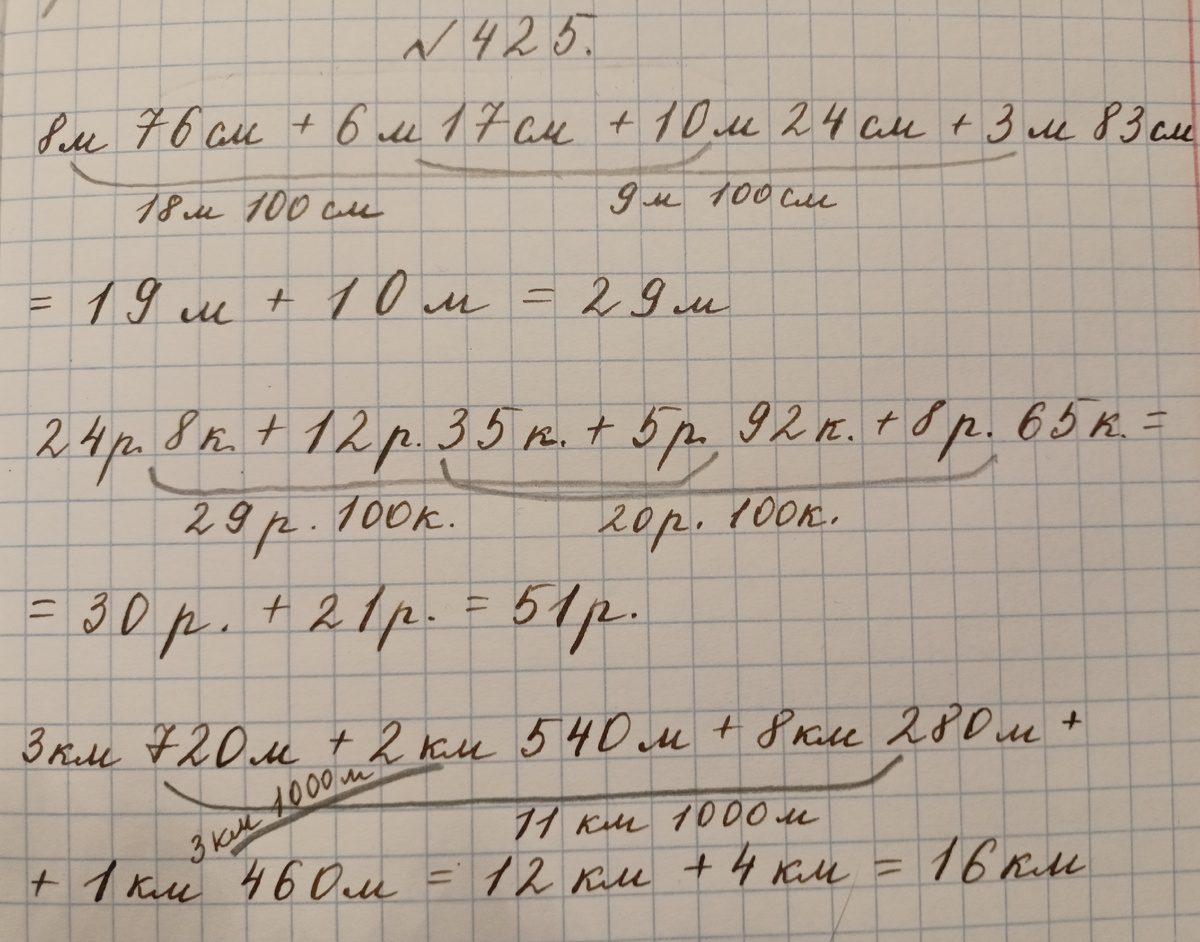 № 425.
8м 76см + 6м 17см + 10м 24см + 3м 83см
18м 100см 9м 100см
= 19м + 10м = 29м
24р. 8к. + 12р. 35к. + 5р. 92к. + 8р. 65к. =
29р. 100к. 20р. 100к.
= 30р. + 21р. = 51р.
3км 720м + 2км 540м + 8км 280м +
3км 1000м 11км 1000м
+ 1км 460м = 12км + 4км = 16км